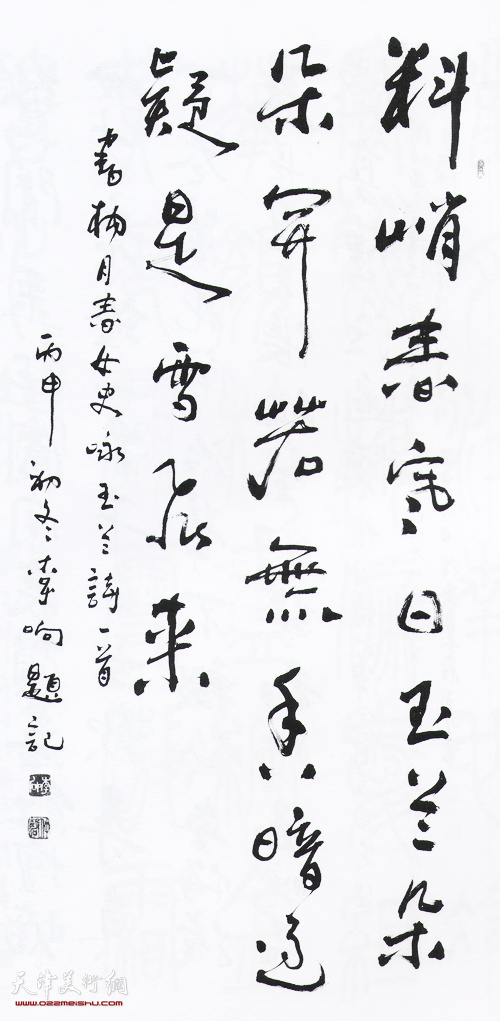 料峭春寒日玉兰朵
朵開若無香暗送
疑是雪飛来
書楊月春女史咏玉兰詩一首
丙申初冬 响題記
天津美术网
www.022meishu.com